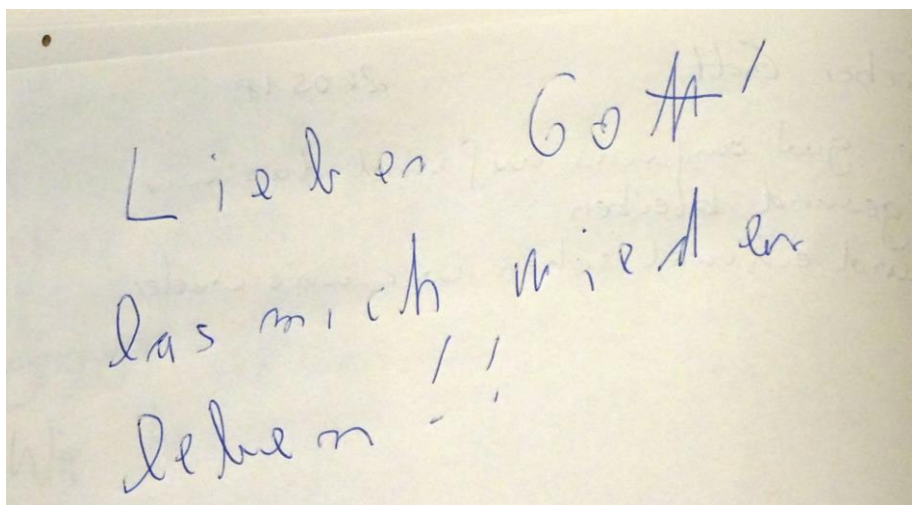 Lieber Gott!
las mich wieder
leben!!